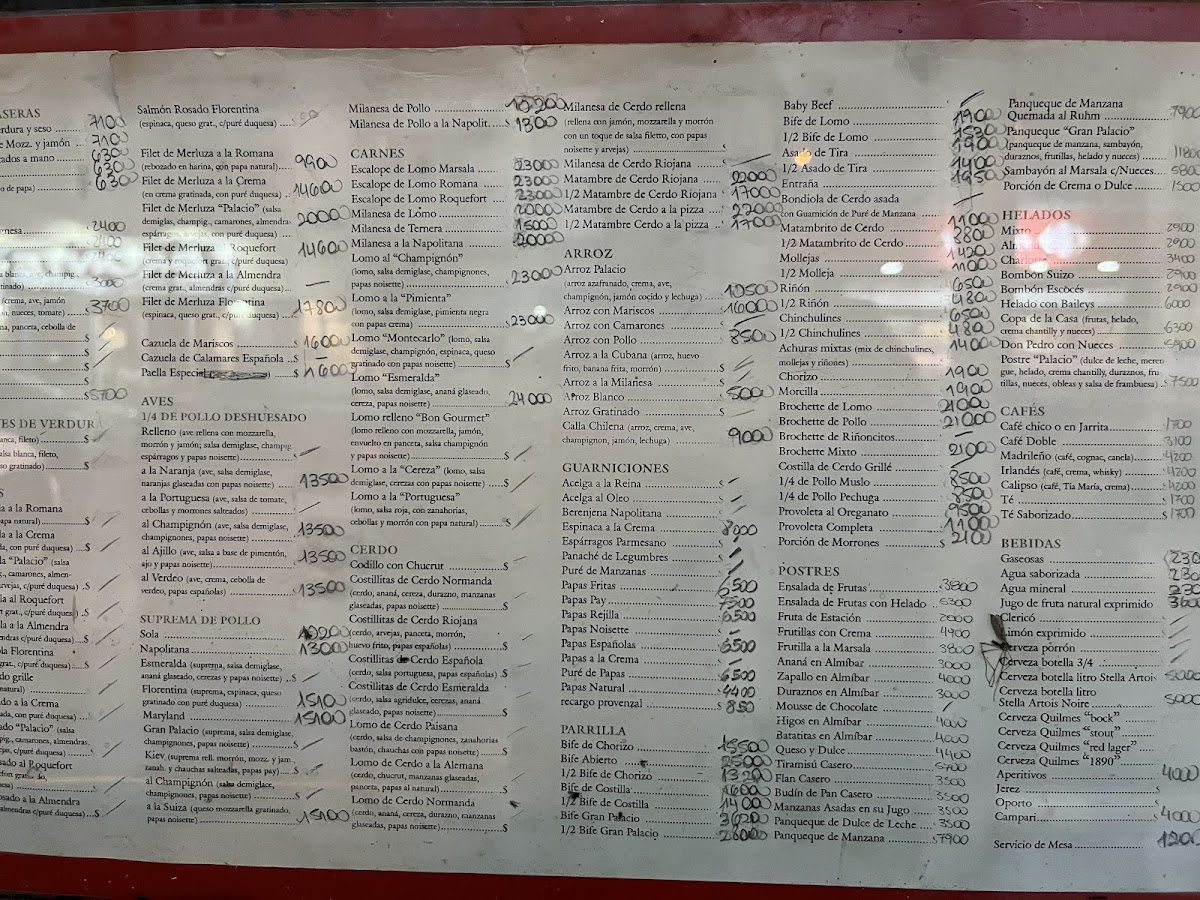 ASERAS
erdura y seso 7100
e Mozz. y jamón 7100
cados a mano 6300
6300
o de papa) 6300
2400
blanca, ave, champig.,
(crema, ave, jamón
n, nueces, tomate) 3700
na, panceta, cebolla de
$
$
$
$ 5700
ES DE VERDURA
anca, fileto) $
alsa blanca, fileto,
so gratinado) $
S
la a la Romana
apa natural) $
la a la Crema
da, con puré duquesa) $
la "Palacio" (salsa
g., camarones, almen-
arvejas, c/puré duquesa) $
al Roquefort
rt grat., c/puré duquesa) $
a la Almendra
ndras c/puré duquesa) $
la Florentina
grat., c/puré duquesa) $
do grille
natural) $
ado a la Crema
ada, con puré duquesa) $
ado "Palacio" (salsa
mpig., camarones, almendras,
ejas, c/puré duquesa) $
sado al Roquefort
efort gratinado,
esa) $
osado a la Almendra
almendras c/puré duquesa) $
Salmón Rosado Florentina
(espinaca, queso grat., c/puré duquesa) $
Filet de Merluza a la Romana
(rebozado en harina, con papa natural) 9900
Filet de Merluza a la Crema
(en crema gratinada, con puré duquesa) 14600
Filet de Merluza "Palacio" (salsa
demiglas, champig., camarones, almendras
espárragos, arvejas, con puré duquesa) 20000
Filet de Merluza Roquefort
(crema y roquefort grat., c/puré duquesa) 14600
Filet de Merluza a la Almendra
(crema grat., almendras c/puré duquesa) —
Filet de Merluza Florentina
(espinaca, queso grat., c/puré duquesa) 17800
Cazuela de Mariscos $ 16000
Cazuela de Calamares Española $ —
Paella Especial $ 16000
AVES
1/4 DE POLLO DESHUESADO
Relleno (ave rellena con mozzarella,
morrón y jamón; salsa demiglase, champig.,
espárragos y papas noisette) /
a la Naranja (ave, salsa demiglase,
naranjas glaseadas con papas noisette) 13500
a la Portuguesa (ave, salsa de tomate,
cebollas y morrones salteados) /
al Champignón (ave, salsa demiglase,
champignones, papas noisette) 13500
al Ajillo (ave, salsa a base de pimentón,
ajo y papas noisette) 13500
al Verdeo (ave, crema, cebolla de
verdeo, papas españolas) 13500
SUPREMA DE POLLO
Sola 10200
Napolitana 13000
Esmeralda (suprema, salsa demiglase,
ananá glaseado, cerezas y papas noisette) $ /
Florentina (suprema, espinaca, queso
gratinado con puré duquesa) 15100
Maryland 15100
Gran Palacio (suprema, salsa demiglase,
champignones, papas noisette) /
Kiev (suprema rell. morrón, mozz. y jam.,
zanah. y chauchas salteadas, papas pay) $ /
al Champignón (salsa demiglace,
champignones, papas noisette) $ /
a la Suiza (queso mozzarella gratinado,
papas noisette) 15100
Milanesa de Pollo 10200
Milanesa de Pollo a la Napolit. $ 1300
CARNES
Escalope de Lomo Marsala 23000
Escalope de Lomo Romana 23000
Escalope de Lomo Roquefort 23000
Milanesa de Lomo 20000
Milanesa de Ternera 15000
Milanesa a la Napolitana 20000
Lomo al "Champignón"
(lomo, salsa demiglase, champignones,
papas noisette) 23000
Lomo a la "Pimienta"
(lomo, salsa demiglase, pimienta negra
con papas crema) 23000
Lomo "Montecarlo" (lomo, salsa
demiglase, champignón, espinaca, queso
gratinado con papas noisette) $ /
Lomo "Esmeralda"
(lomo, salsa demiglase, ananá glaseado,
cereza, papas noisette) 24000
Lomo relleno "Bon Gourmet"
(lomo relleno con mozzarella, jamón,
envuelto en panceta, salsa champignón
y papas noisette) $ /
Lomo a la "Cereza" (lomo, salsa
demiglase, cerezas con papas noisette) $ /
Lomo a la "Portuguesa"
(lomo, salsa roja, con zanahorias,
cebollas y morrón con papa natural) $ /
CERDO
Codillo con Chucrut $ /
Costillitas de Cerdo Normanda
(cerdo, ananá, cereza, durazno, manzanas
glaseadas, papas noisette) $
Costillitas de Cerdo Riojana
(cerdo, arvejas, panceta, morrón,
huevo frito, papas españolas) $
Costillitas de Cerdo Española
(cerdo, salsa portuguesa, papas españolas) $
Costillitas de Cerdo Esmeralda
(cerdo, salsa agridulce, cerezas, ananá
glaseado, papas noisette) $
Lomo de Cerdo Paisana
(cerdo, salsa de champignones, zanahorias
bastón, chauchas con papas noisette) $
Lomo de Cerdo a la Alemana
(cerdo, chucrut, manzanas glaseadas,
panceta, papas al natural) $
Lomo de Cerdo Normanda
(cerdo, ananá, cereza, durazno, manzanas
glaseadas, papas noisette) $
Milanesa de Cerdo rellena
(rellena con jamón, mozzarella y morrón
con un toque de salsa filetto, con papas
noisette y arvejas) $
Milanesa de Cerdo Riojana $ /
Matambre de Cerdo Riojana 22000
1/2 Matambre de Cerdo Riojana 17000
Matambre de Cerdo a la pizza 22000
1/2 Matambre de Cerdo a la pizza 17000
ARROZ
Arroz Palacio
(arroz azafranado, crema, ave,
champignón, jamón cocido y lechuga) 10500
Arroz con Mariscos 16000
Arroz con Camarones /
Arroz con Pollo 8500
Arroz a la Cubana (arroz, huevo
frito, banana frita, morrón) $ /
Arroz a la Milanesa $ /
Arroz Blanco 5000
Arroz Gratinado $ /
Calla Chilena (arroz, crema, ave,
champignon, jamón, lechuga) 9000
GUARNICIONES
Acelga a la Reina $ /
Acelga al Oleo $ /
Berenjena Napolitana $ /
Espinaca a la Crema 8900
Espárragos Parmesano $ /
Panaché de Legumbres $ /
Puré de Manzanas $ /
Papas Fritas 6500
Papas Pay 7500
Papas Rejilla 6500
Papas Noisette /
Papas Españolas 6500
Papas a la Crema /
Puré de Papas 6500
Papas Natural 4400
recargo provenzal $ 850
PARRILLA
Bife de Chorizo 15500
Bife Abierto 25000
1/2 Bife de Chorizo 13200
Bife de Costilla
1/2 Bife de Costilla 14000
Bife Gran Palacio
1/2 Bife Gran Palacio
Baby Beef /
Bife de Lomo
1/2 Bife de Lomo
Asado de Tira
1/2 Asado de Tira
Entraña
Bondiola de Cerdo asada
con Guarnición de Puré de Manzana /
Matambrito de Cerdo 11000
1/2 Matambrito de Cerdo 8800
Mollejas
1/2 Molleja
Riñón 6500
1/2 Riñón 4800
Chinchulines 6500
1/2 Chinchulines 4800
Achuras mixtas (mix de chinchulines,
mollejas y riñones)
Chorizo 1900
Morcilla 1900
Brochette de Lomo 21000
Brochette de Pollo 21000
Brochette de Riñoncitos —
Brochette Mixto 21000
Costilla de Cerdo Grillé /
1/4 de Pollo Muslo 8500
1/4 de Pollo Pechuga 8500
Provoleta al Oreganato 9500
Provoleta Completa 11000
Porción de Morrones $ 2100
POSTRES
Ensalada de Frutas 3800
Ensalada de Frutas con Helado 5300
Fruta de Estación 2000
Frutillas con Crema 4900
Frutilla a la Marsala 3800
Ananá en Almíbar 3000
Zapallo en Almíbar 4000
Duraznos en Almíbar 3000
Mousse de Chocolate /
Higos en Almíbar 4000
Batatitas en Almíbar 4000
Queso y Dulce 4400
Tiramisú Casero 5700
Flan Casero 3500
Budín de Pan Casero 3500
Manzanas Asadas en su Jugo 3500
Panqueque de Dulce de Leche 3500
Panqueque de Manzana $ 7900
Panqueque de Manzana
Quemada al Ruhm 7900
Panqueque "Gran Palacio"
(panqueque de manzana, sambayón,
duraznos, frutillas, helado y nueces) 11800
Sambayón al Marsala c/Nueces 5800
Porción de Crema o Dulce 1500
HELADOS
Mixto 2900
2900
3400
Bombón Suizo 2900
Bombón Escocés 2900
Helado con Baileys 6000
Copa de la Casa (frutas, helado,
crema chantilly y nueces) 6300
Don Pedro con Nueces 5900
Postre "Palacio" (dulce de leche, meren-
gue, helado, crema chantilly, duraznos, fru-
tillas, nueces, obleas y salsa de frambuesa) $ 7500
CAFÉS
Café chico o en Jarrita 1700
Café Doble 3100
Madrileño (café, cognac, canela) 4200
Irlandés (café, crema, whisky) 4200
Calipso (café, Tía María, crema) 4200
Té 1700
Té Saborizado $ 1700
BEBIDAS
Gaseosas 230
Agua saborizada 230
Agua mineral 230
Jugo de fruta natural exprimido 360
Clericó /
Limón exprimido /
Cerveza porrón /
Cerveza botella 3/4 /
Cerveza botella litro Stella Artois 5000
Cerveza botella litro
Stella Artois Noire 5000
Cerveza Quilmes "bock"
Cerveza Quilmes "stout"
Cerveza Quilmes "red lager"
Cerveza Quilmes "1890"
Aperitivos 4000
Jerez $
Oporto $
Campari $ 4000
Servicio de Mesa 120